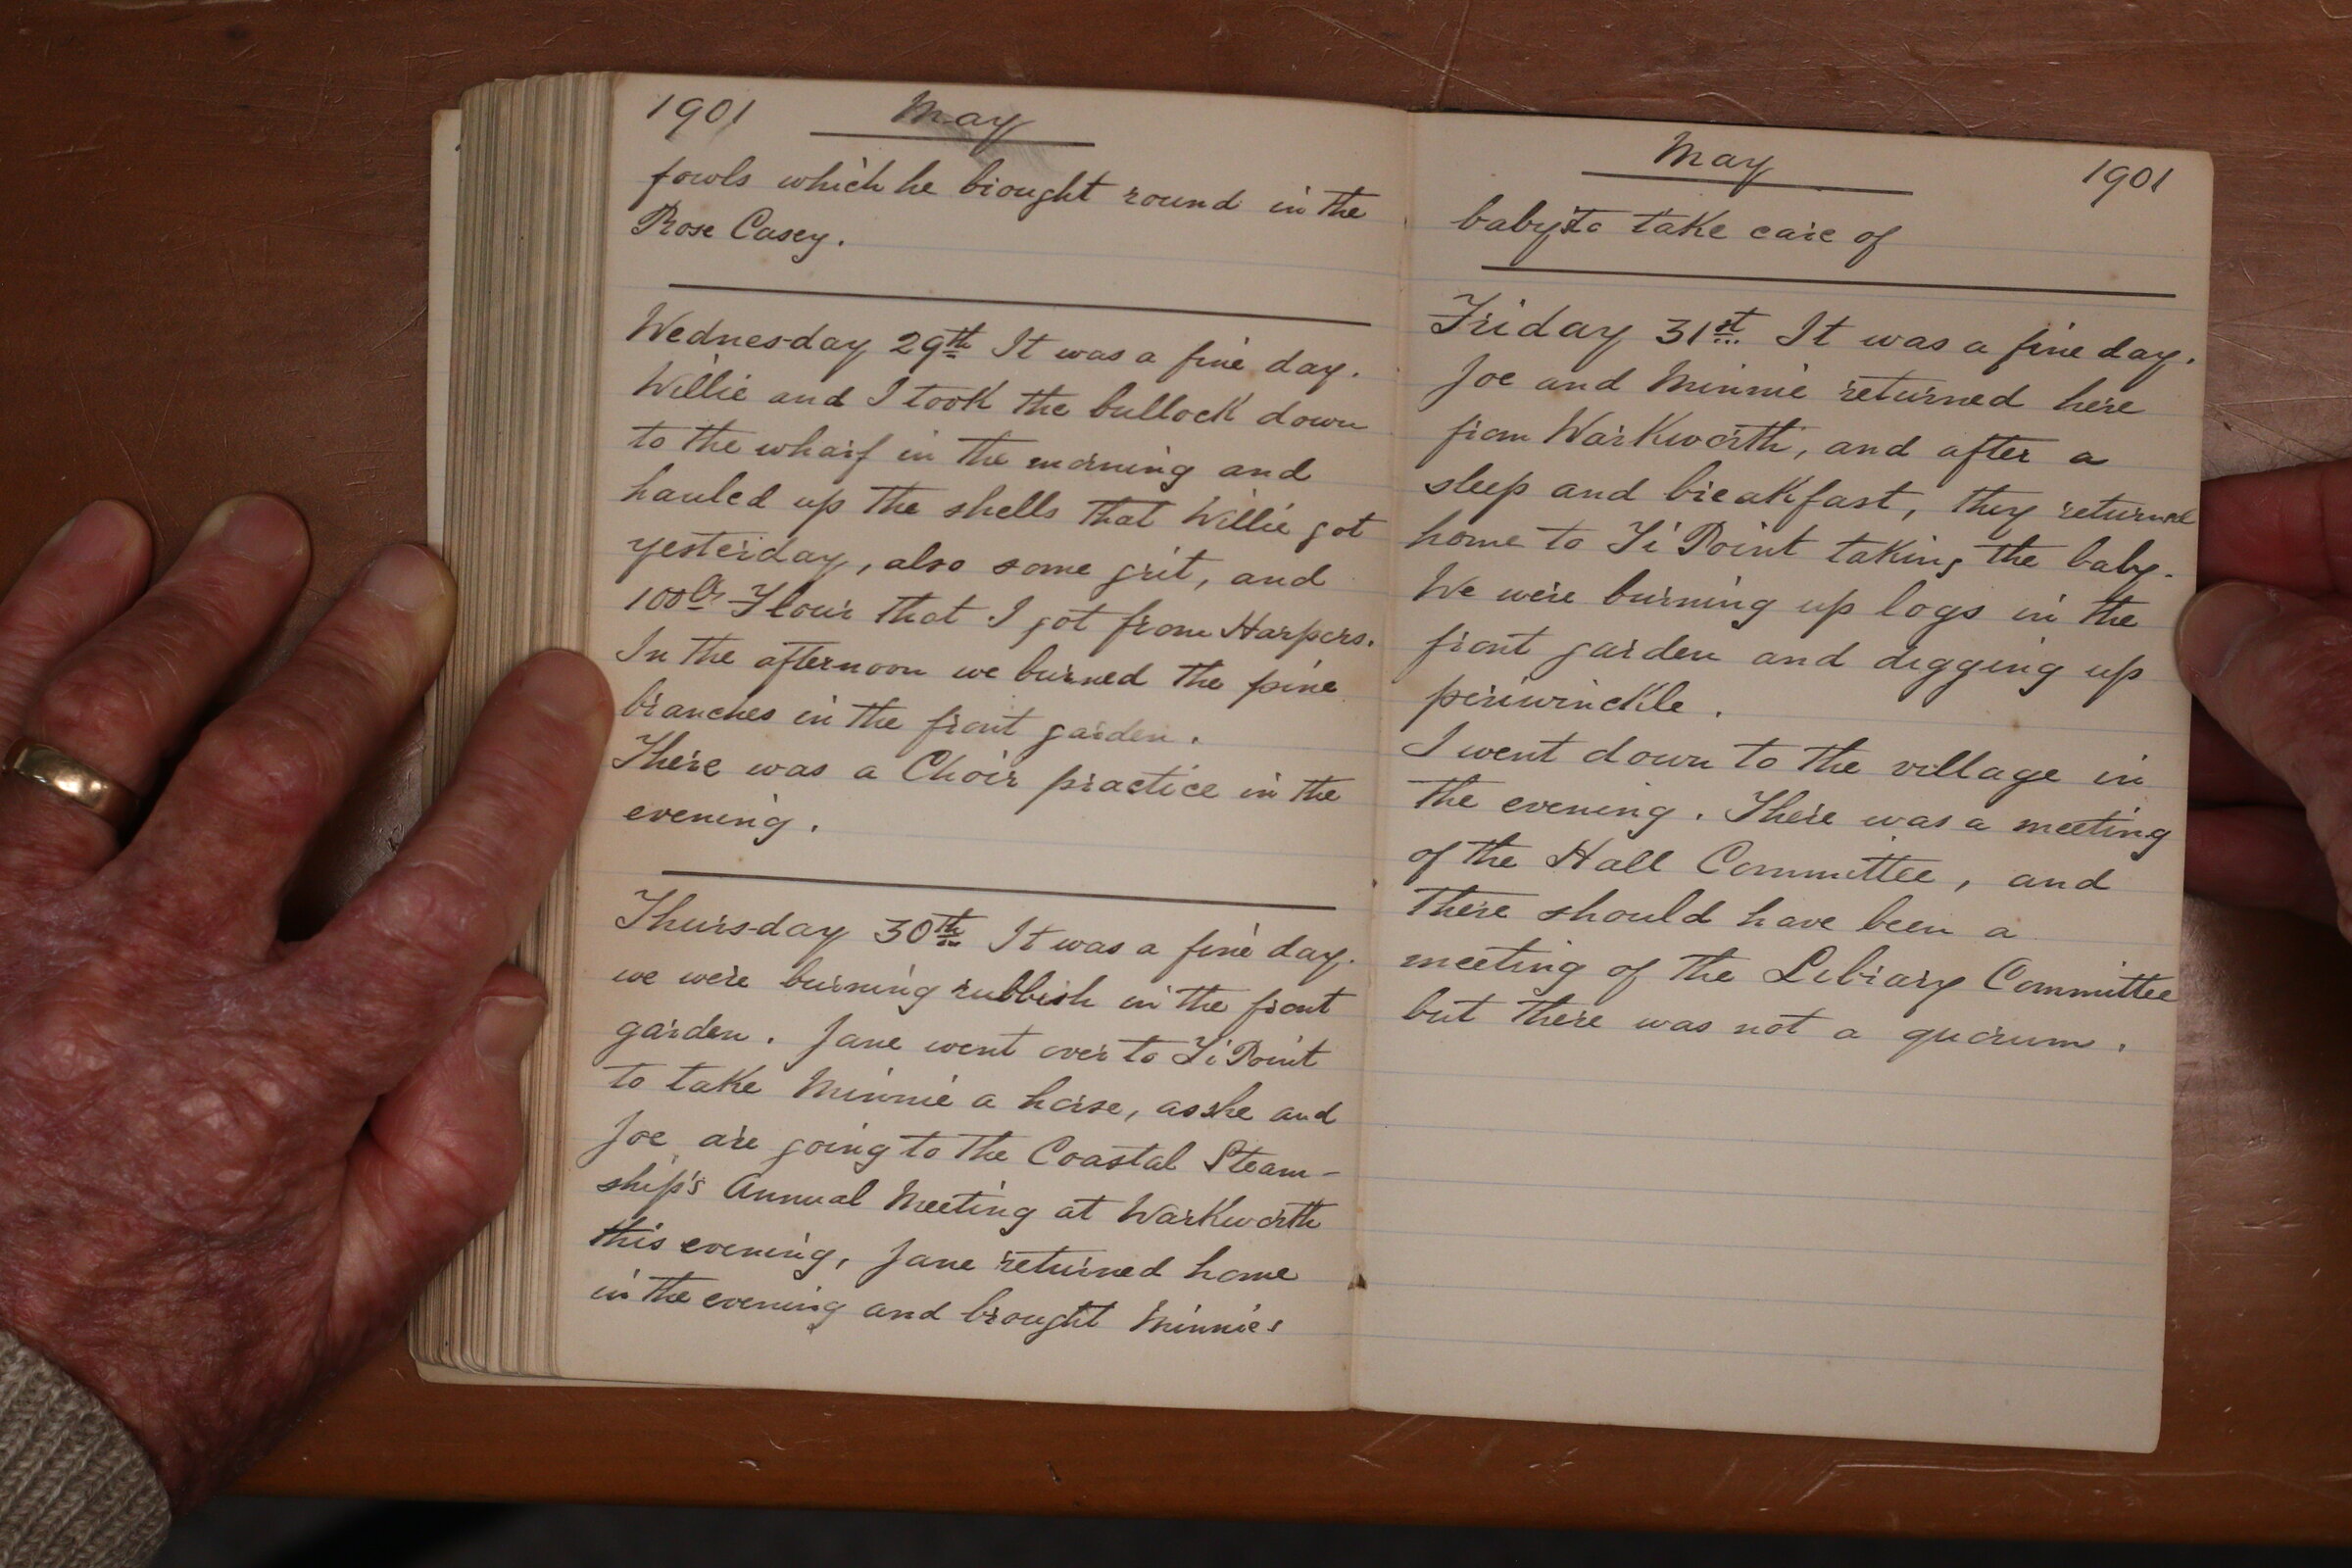 1901 May
fowls which he brought round in the
Rose Casey.
Wednesday 29th It was a fine day.
Willie and I took the bullock down
to the wharf in the morning and
hauled up the shells that Willie got
yesterday, also some grit, and
100lb Flour that I got from Harpers.
In the afternoon we burned the pine
branches in the front garden.
There was a Choir practice in the
evening.
Thursday 30th It was a fine day.
we were burning rubbish in the front
garden. Jane went over to Ti Point
to take Minnie a horse, as she and
Joe are going to the Coastal Steam-
ship's Annual Meeting at Warkworth
this evening, Jane returned home
in the evening and brought Minnies
May 1901
baby to take care of
Friday 31st It was a fine day.
Joe and Minnie returned here
from Warkworth, and after a
sleep and breakfast, they returned
home to Ti Point taking the baby.
We were burning up logs in the
front garden and digging up
periwinckle.
I went down to the village in
the evening. There was a meeting
of the Hall Committee, and
there should have been a
meeting of the Library Committee
but there was not a quorum.